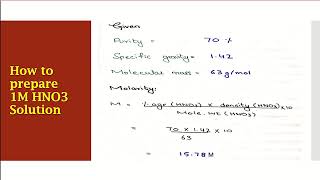 How to
prepare
1M HNO3
Solution
Given
Purity = 70 %
Specific gravity = 1.42
Molecular mass = 63 g/mol
Molarity:
M = %age (HNO3) × density (HNO3) ×10
Mole. Wt (HNO3)
= 70 × 1.42 × 10
63
= 15.78M